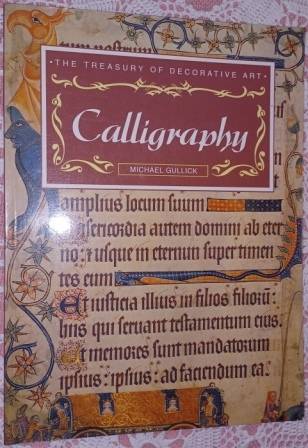 tum nostrum
• THE TREASURY OF DECORATIVE ART •
Calligraphy
MICHAEL GULLICK
amplius locum suum
isericordia autem domini ab eter
no: et usque in eternum super timen
tes eum
Et iusticia illius in filios filiorū:
hiis qui seruant testamentum eius.
Et memores sunt mandatorum
ipsius: ipsius: ad faciendum ea.